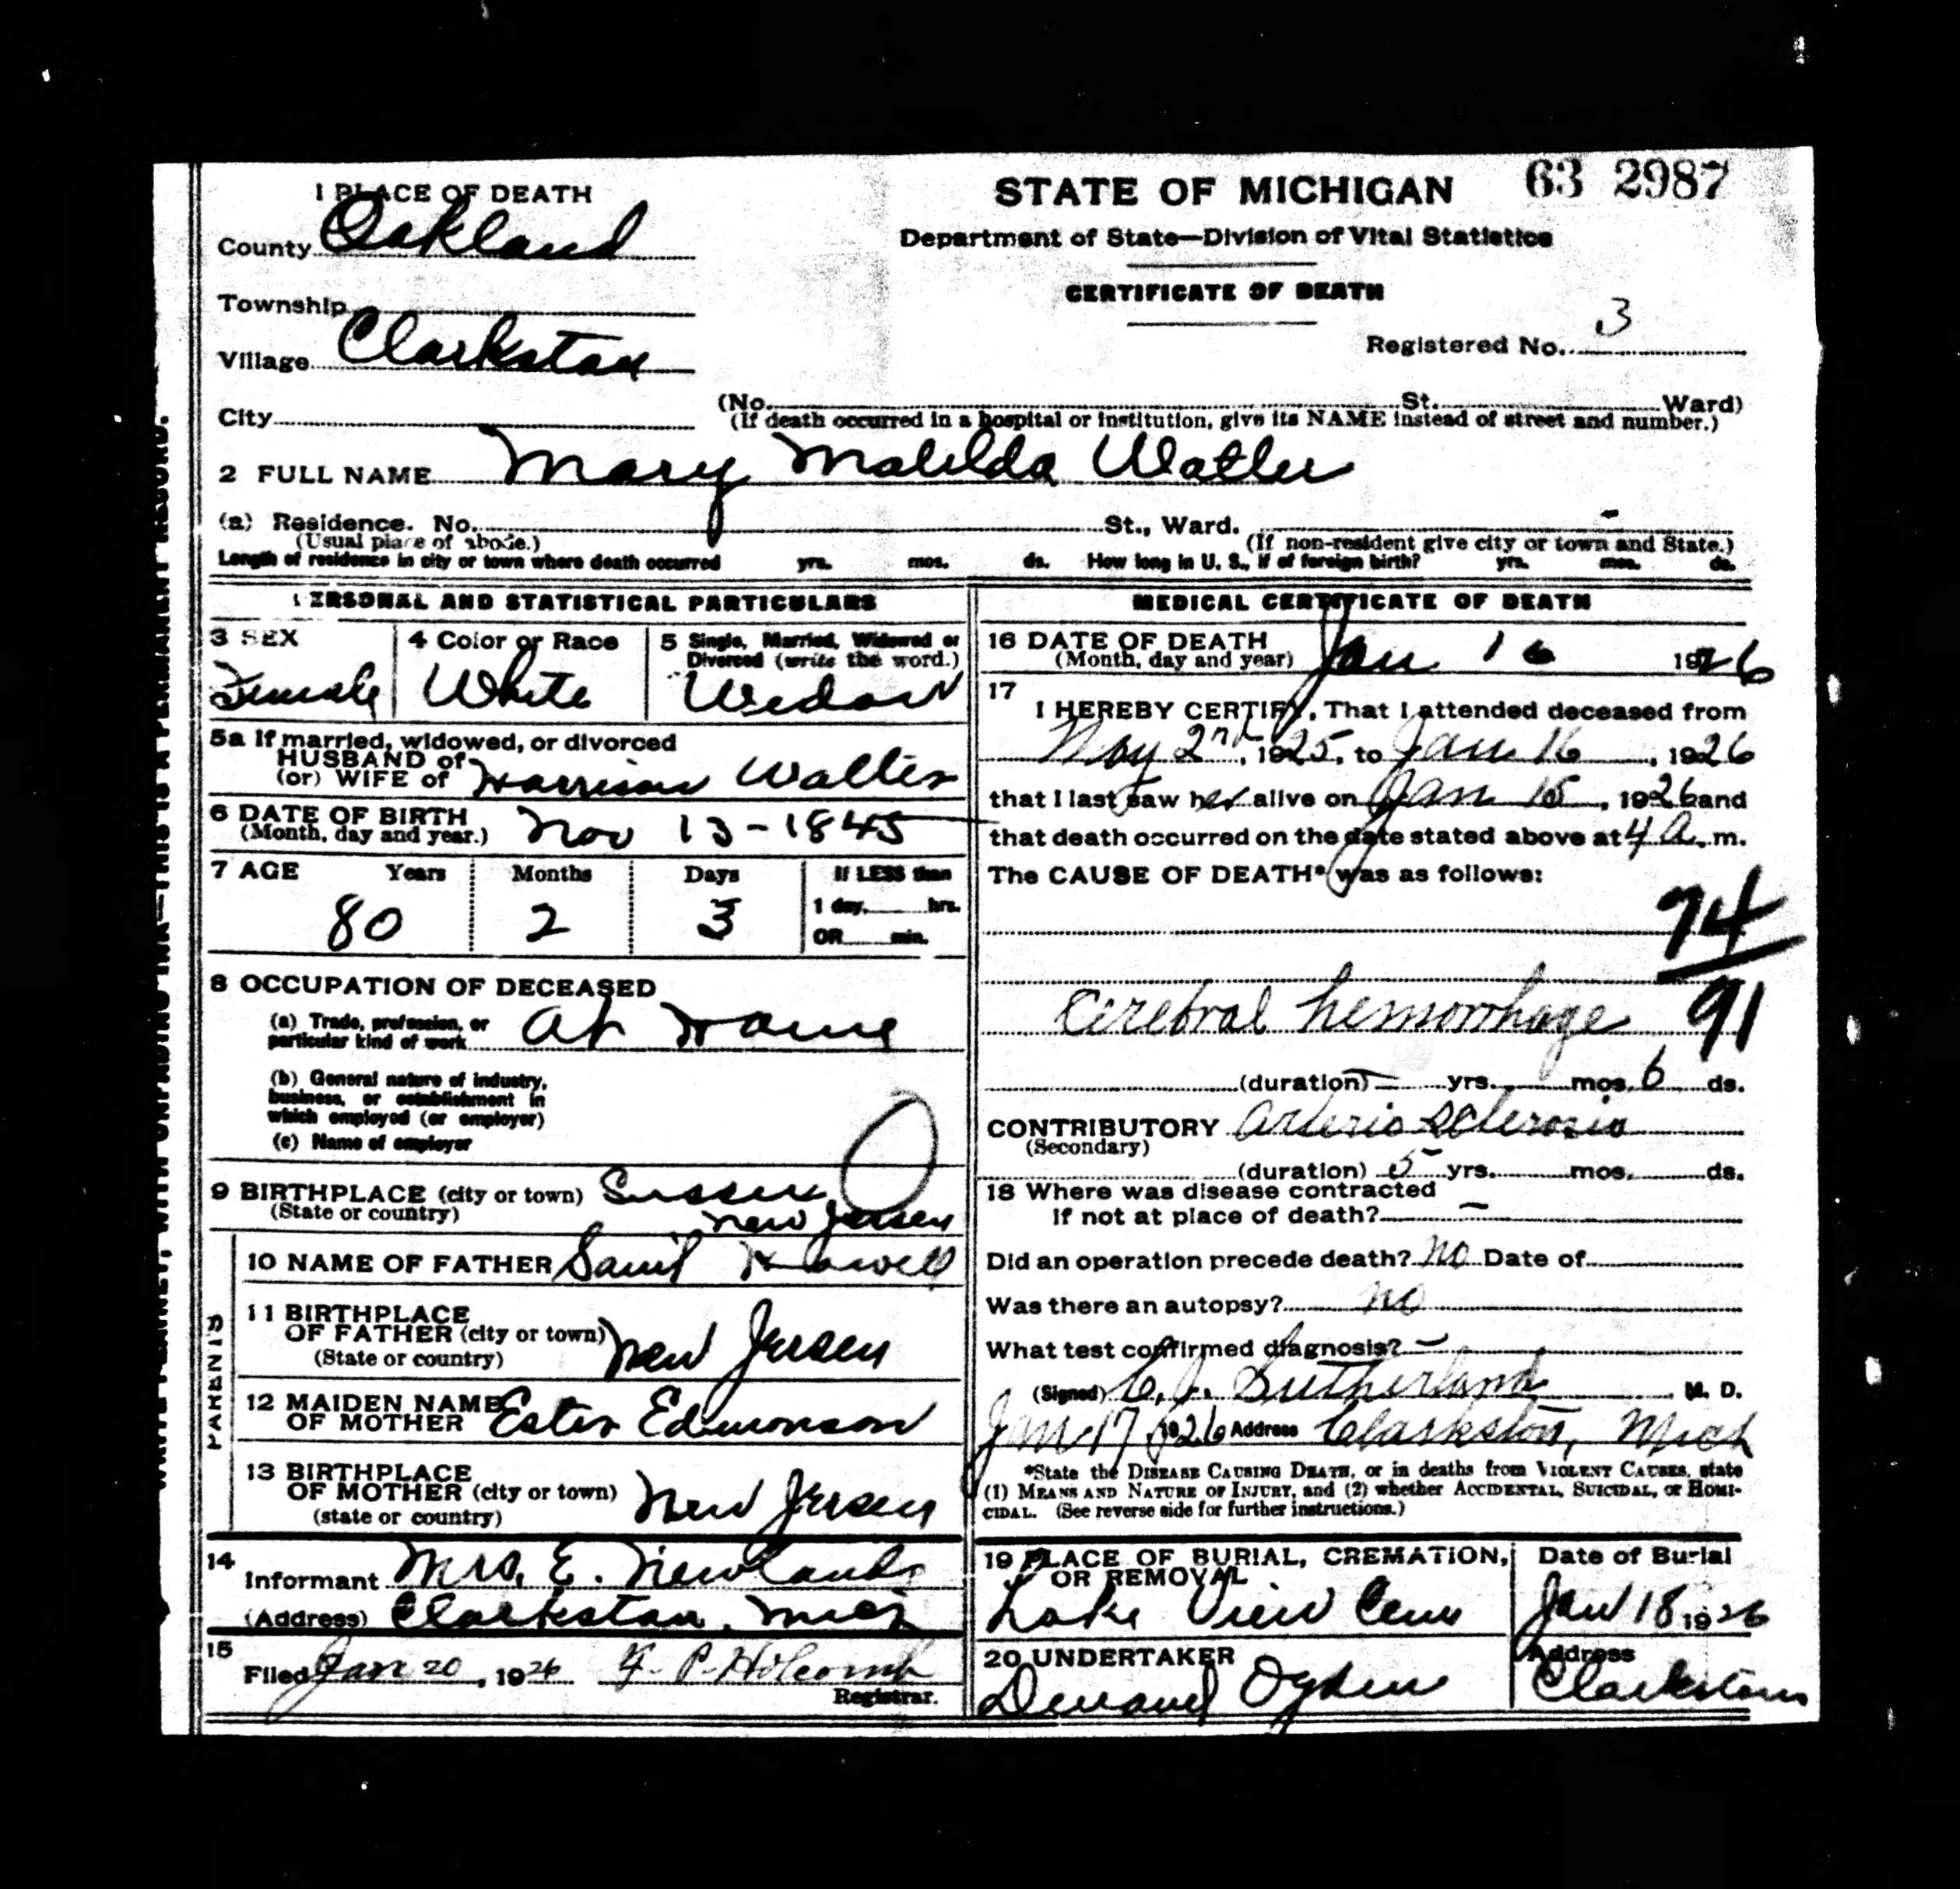 63 2987
STATE OF MICHIGAN
Department of State—Division of Vital Statistics
CERTIFICATE OF DEATH
Registered No. 3
1 PLACE OF DEATH
County Oakland
Township
Village Clarkston
City
(No. St. Ward)
(If death occurred in a hospital or institution, give its NAME instead of street and number.)
2 FULL NAME Mary Matilda Walter
(a) Residence. No. St., Ward. -
(Usual place of abode.) (If non-resident give city or town and State.)
Length of residence in city or town where death occurred yrs. mos. ds. How long in U. S., if of foreign birth? yrs. mos. ds.
PERSONAL AND STATISTICAL PARTICULARS
3 SEX
Female
4 Color or Race
White
5 Single, Married, Widowed or
Divorced (write the word.)
Widow
5a If married, widowed, or divorced
HUSBAND of
(or) WIFE of Harrison Walter
6 DATE OF BIRTH
(Month, day and year.) Nov 13-1845
7 AGE Years Months Days If LESS than
1 day, hrs.
OR min.
80 2 3
8 OCCUPATION OF DECEASED
(a) Trade, profession, or
particular kind of work At Home
(b) General nature of industry,
business, or establishment in
which employed (or employer)
(c) Name of employer
9 BIRTHPLACE (city or town) Sussex,
(State or country) New Jersey
PARENTS
10 NAME OF FATHER Saml Howell
11 BIRTHPLACE
OF FATHER (city or town) New Jersey
(State or country)
12 MAIDEN NAME
OF MOTHER Ester Edmonson
13 BIRTHPLACE
OF MOTHER (city or town) New Jersey
(state or country)
14
Informant Mrs. E. Newlands
(Address) Clarkston, Mich
15
Filed Jan 20, 1926 F. P. Holcomb
Registrar.
MEDICAL CERTIFICATE OF DEATH
16 DATE OF DEATH
(Month, day and year) Jan 16 1926
17
I HEREBY CERTIFY, That I attended deceased from
Nov 2nd, 1925, to Jan 16, 1926
that I last saw her alive on Jan 15, 1926 and
that death occurred on the date stated above at 4 a. m.
The CAUSE OF DEATH* was as follows:
74
91
Cerebral hemorrhage
(duration) — yrs. mos. 6 ds.
CONTRIBUTORY Arterio sclerosis
(Secondary)
(duration) 5 yrs. mos. ds.
18 Where was disease contracted
if not at place of death? —
Did an operation precede death? no Date of
Was there an autopsy? no
What test confirmed diagnosis? —
(Signed) C. J. Sutherland M. D.
Jan 17, 1926 Address Clarkston, Mich
*State the DISEASE CAUSING DEATH, or in deaths from VIOLENT CAUSES, state
(1) MEANS AND NATURE OF INJURY, and (2) whether ACCIDENTAL, SUICIDAL, or HOMI-
CIDAL. (See reverse side for further instructions.)
19 PLACE OF BURIAL, CREMATION,
OR REMOVAL
Lake View Cem
Date of Burial
Jan 18 1926
20 UNDERTAKER
Ogden
Address
Clarkston